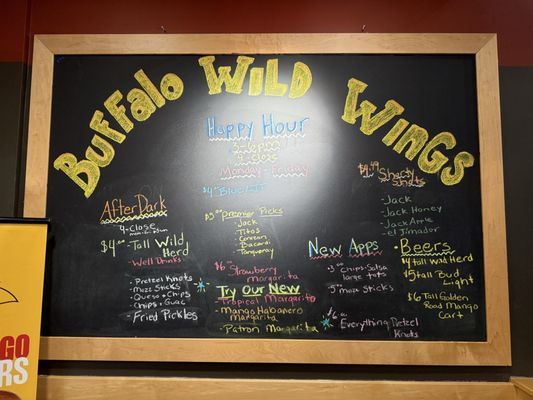 Buffalo Wild Wings
Happy Hour
3-6pm
Monday-Friday
AfterDark
9-close
$4.00 Tall Wild
Herd
-Well Drinks
-Pretzel Knots
-Mozz Sticks
-Queso + Chips
-Chips + Guac
-Fried Pickles
$5 Premier Picks
-Jack
-Titos
-Bacardi
-Tanqueray
$6 Strawberry
margarita
Try Our New
Tropical Margarita
-Mango Habanero
Margarita
-Patron Margarita
New Apps
$3 chips-Salsa
large tots
$5 mozz Sticks
$6 Everything Pretzel
Knots
-Jack
-Jack Honey
-Jack Apple
-el Jimador
Beers
$4 tall Wild Herd
$5 tall Bud
Light
$6 Tall Golden
Road Mango
Cart
GO
RS